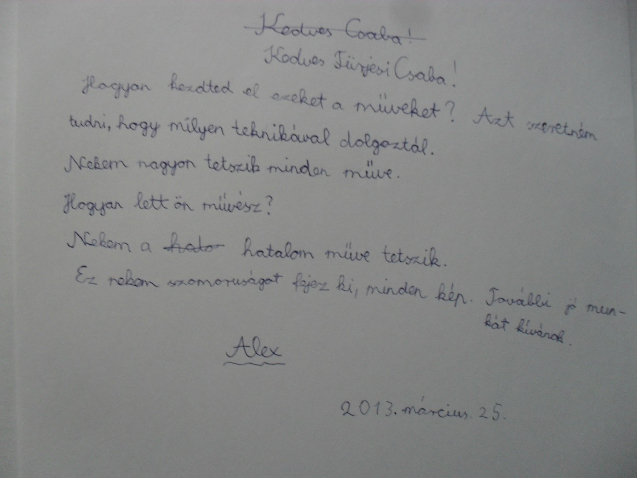 Kedves Csaba!
Kedves Fürjesi Csaba!
Hogyan kezdted el ezeket a műveket? Azt szeretném
tudni, hogy milyen teknikával dolgoztál.
Nekem nagyon tetszik minden műve.
Hogyan lett ön művész?
Nekem a hato hatalom műve tetszik.
Ez nekem szomoruságot fejez ki, minden kép. További jó mun-
kát kívánok.
Alex
2013. március 25.